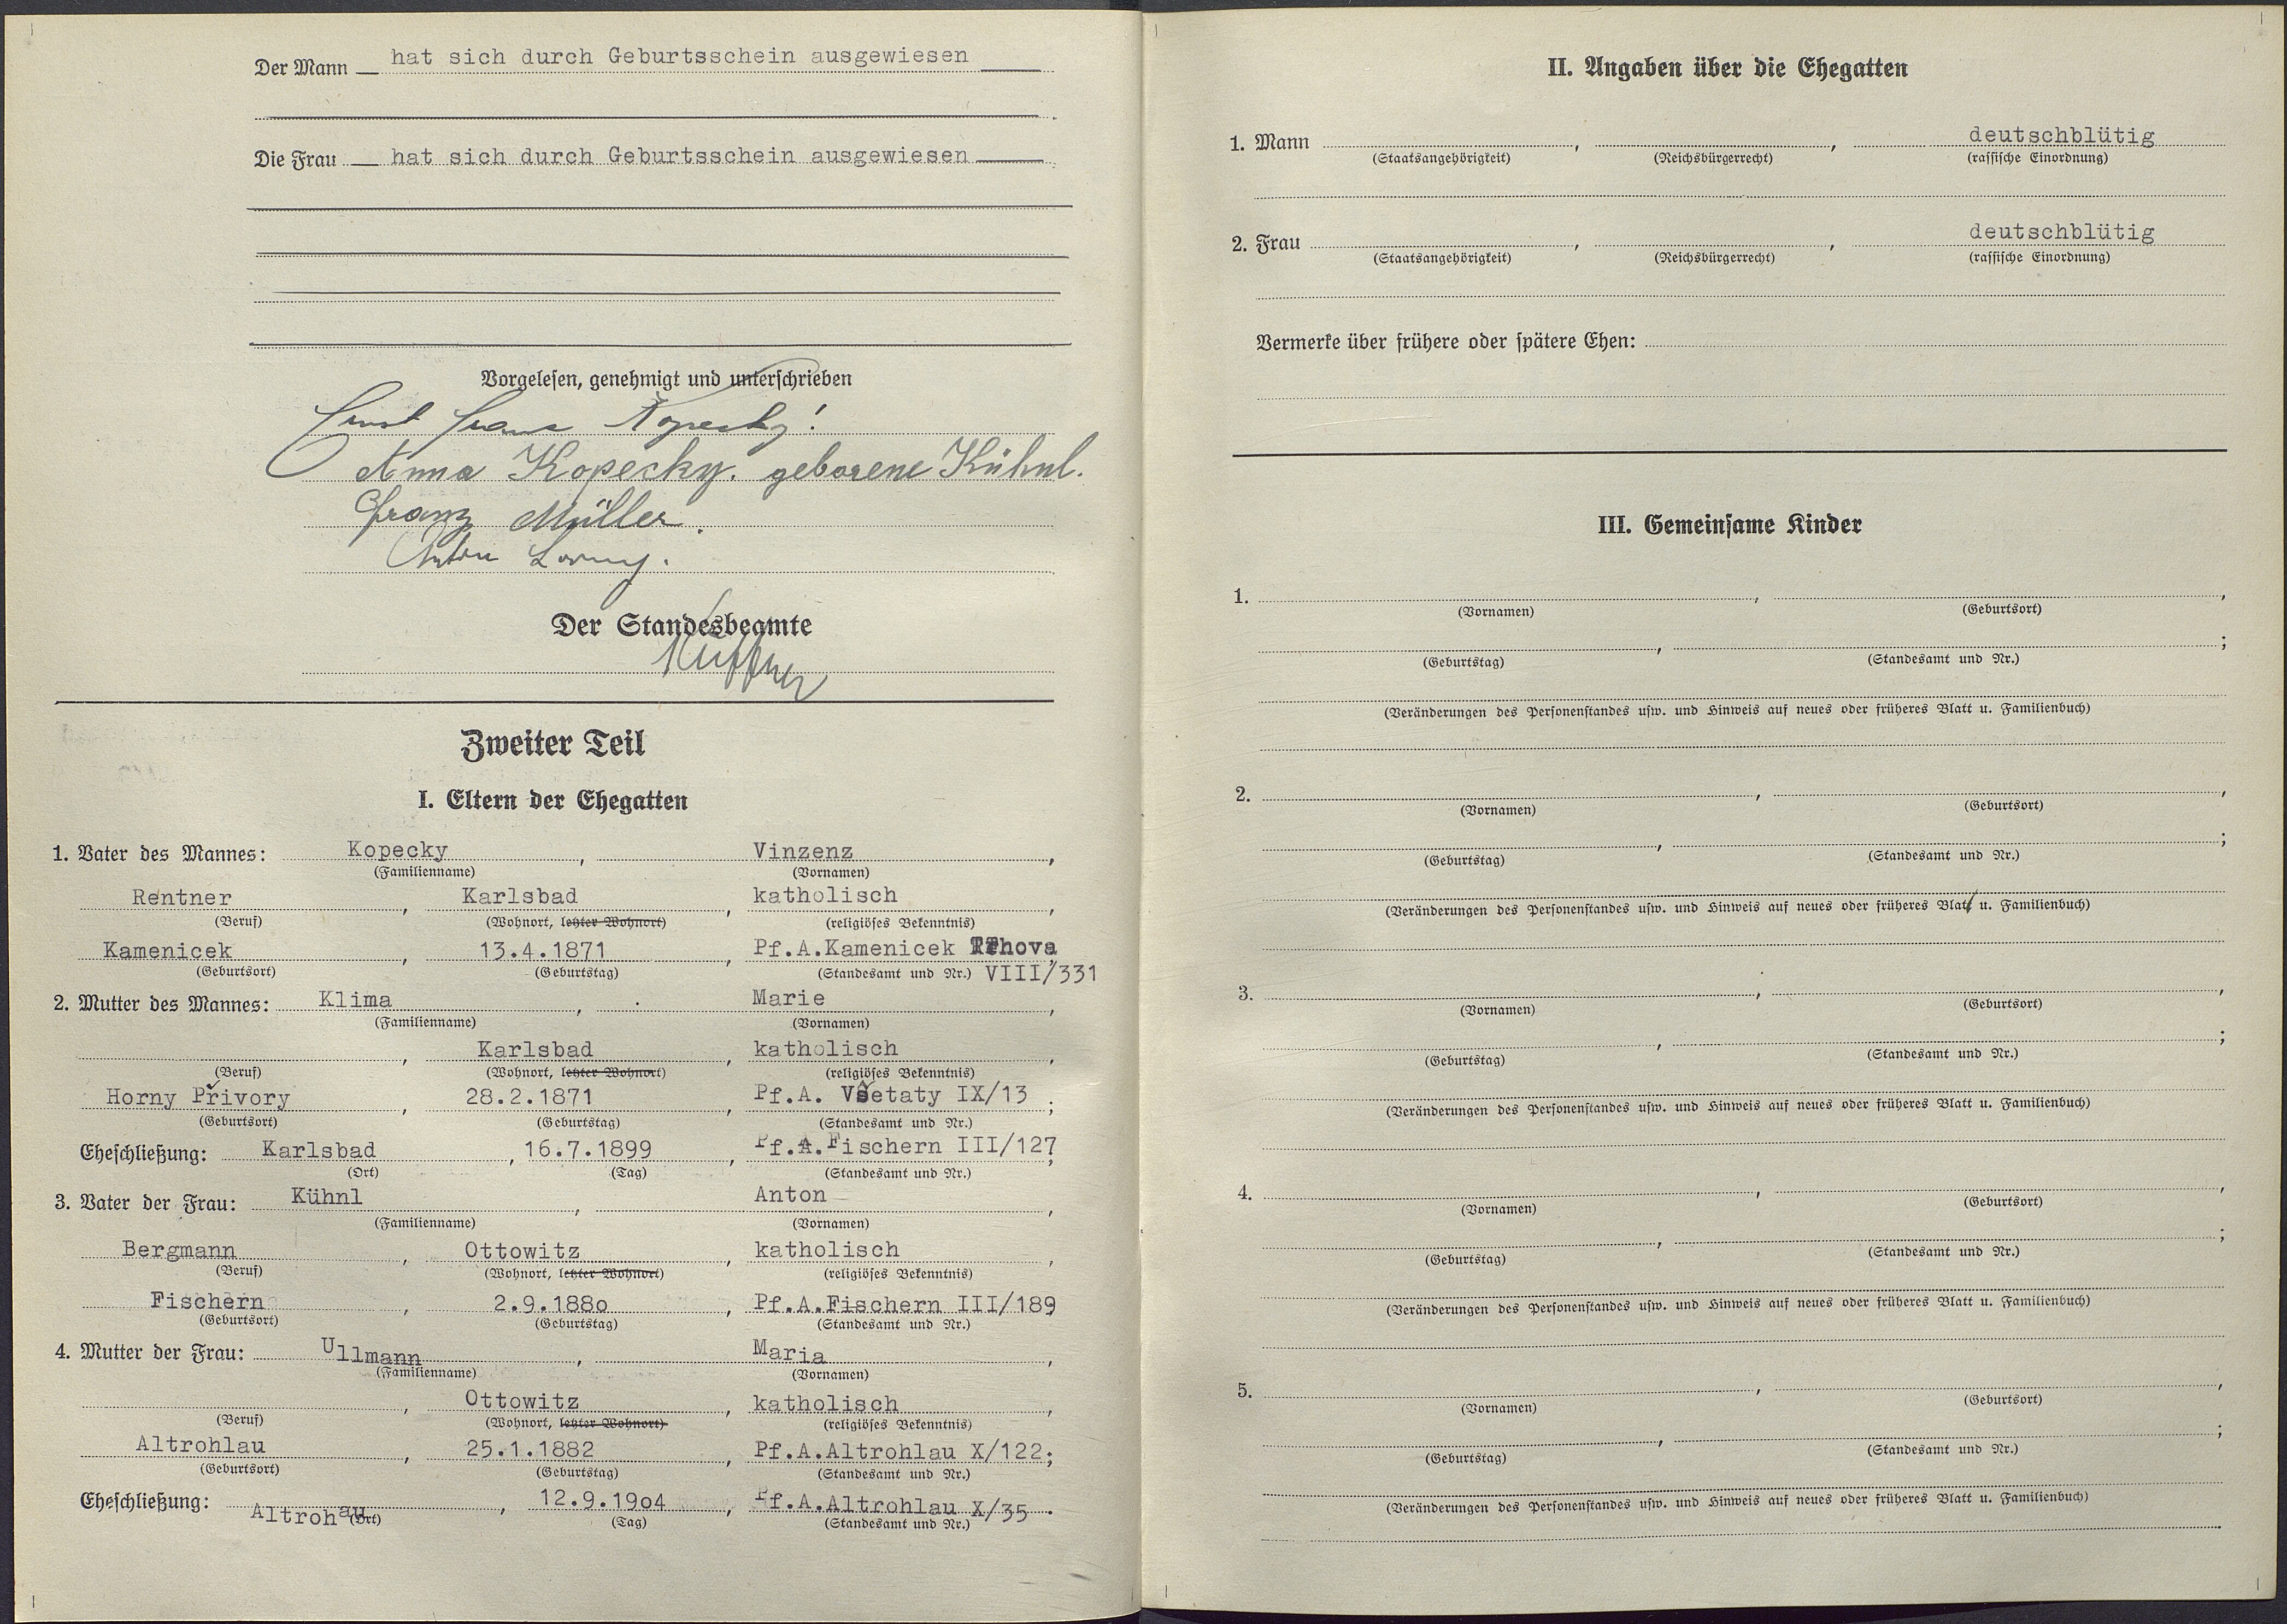 Der Mann hat sich durch Geburtsschein ausgewiesen
Die Frau hat sich durch Geburtsschein ausgewiesen
Vorgelesen, genehmigt und unterschrieben
Ernst Franz Kopecky!
Anna Kopecky. geborene Kühnl.
Franz Müller.
Anton
Der Standesbeamte
Zweiter Teil
I. Eltern der Ehegatten
1. Vater des Mannes: Kopecky, Vinzenz,
(Familienname) (Vornamen)
Rentner, Karlsbad, katholisch,
(Beruf) (Wohnort, letzter Wohnort) (religiöses Bekenntnis)
Kamenicek, 13.4.1871, Pf.A.Kamenicek
(Geburtsort) (Geburtstag) (Standesamt und Nr.) VIII/331
2. Mutter des Mannes: Klima, Marie,
(Familienname) (Vornamen)
, Karlsbad, katholisch,
(Beruf) (Wohnort, letzter Wohnort) (religiöses Bekenntnis)
Horny Přivory, 28.2.1871, Pf.A. Všetaty IX/13;
(Geburtsort) (Geburtstag) (Standesamt und Nr.)
Eheschließung: Karlsbad, 16.7.1899, Pf.A.Fischern III/127;
(Ort) (Tag) (Standesamt und Nr.)
3. Vater der Frau: Kühnl, Anton,
(Familienname) (Vornamen)
Bergmann, Ottowitz, katholisch,
(Beruf) (Wohnort, letzter Wohnort) (religiöses Bekenntnis)
Fischern, 2.9.188o, Pf.A.Fischern III/189
(Geburtsort) (Geburtstag) (Standesamt und Nr.)
4. Mutter der Frau: Ullmann, Maria,
(Familienname) (Vornamen)
, Ottowitz, katholisch,
(Beruf) (Wohnort, letzter Wohnort) (religiöses Bekenntnis)
Altrohlau, 25.1.1882, Pf.A.Altrohlau X/122;
(Geburtsort) (Geburtstag) (Standesamt und Nr.)
Eheschließung: Altrohau, 12.9.19o4, Pf.A.Altrohlau X/35.
(Ort) (Tag) (Standesamt und Nr.)
II. Angaben über die Ehegatten
1. Mann , , deutschblütig
(Staatsangehörigkeit) (Reichsbürgerrecht) (rassische Einordnung)
2. Frau , , deutschblütig
(Staatsangehörigkeit) (Reichsbürgerrecht) (rassische Einordnung)
Vermerke über frühere oder spätere Ehen:
III. Gemeinsame Kinder
1. , ,
(Vornamen) (Geburtsort)
, ;
(Geburtstag) (Standesamt und Nr.)
(Veränderungen des Personenstandes usw. und Hinweis auf neues oder früheres Blatt u. Familienbuch)
2. , ,
(Vornamen) (Geburtsort)
, ;
(Geburtstag) (Standesamt und Nr.)
(Veränderungen des Personenstandes usw. und Hinweis auf neues oder früheres Blatt u. Familienbuch)
3. , ,
(Vornamen) (Geburtsort)
, ;
(Geburtstag) (Standesamt und Nr.)
(Veränderungen des Personenstandes usw. und Hinweis auf neues oder früheres Blatt u. Familienbuch)
4. , ,
(Vornamen) (Geburtsort)
, ;
(Geburtstag) (Standesamt und Nr.)
(Veränderungen des Personenstandes usw. und Hinweis auf neues oder früheres Blatt u. Familienbuch)
5. , ,
(Vornamen) (Geburtsort)
, ;
(Geburtstag) (Standesamt und Nr.)
(Veränderungen des Personenstandes usw. und Hinweis auf neues oder früheres Blatt u. Familienbuch)